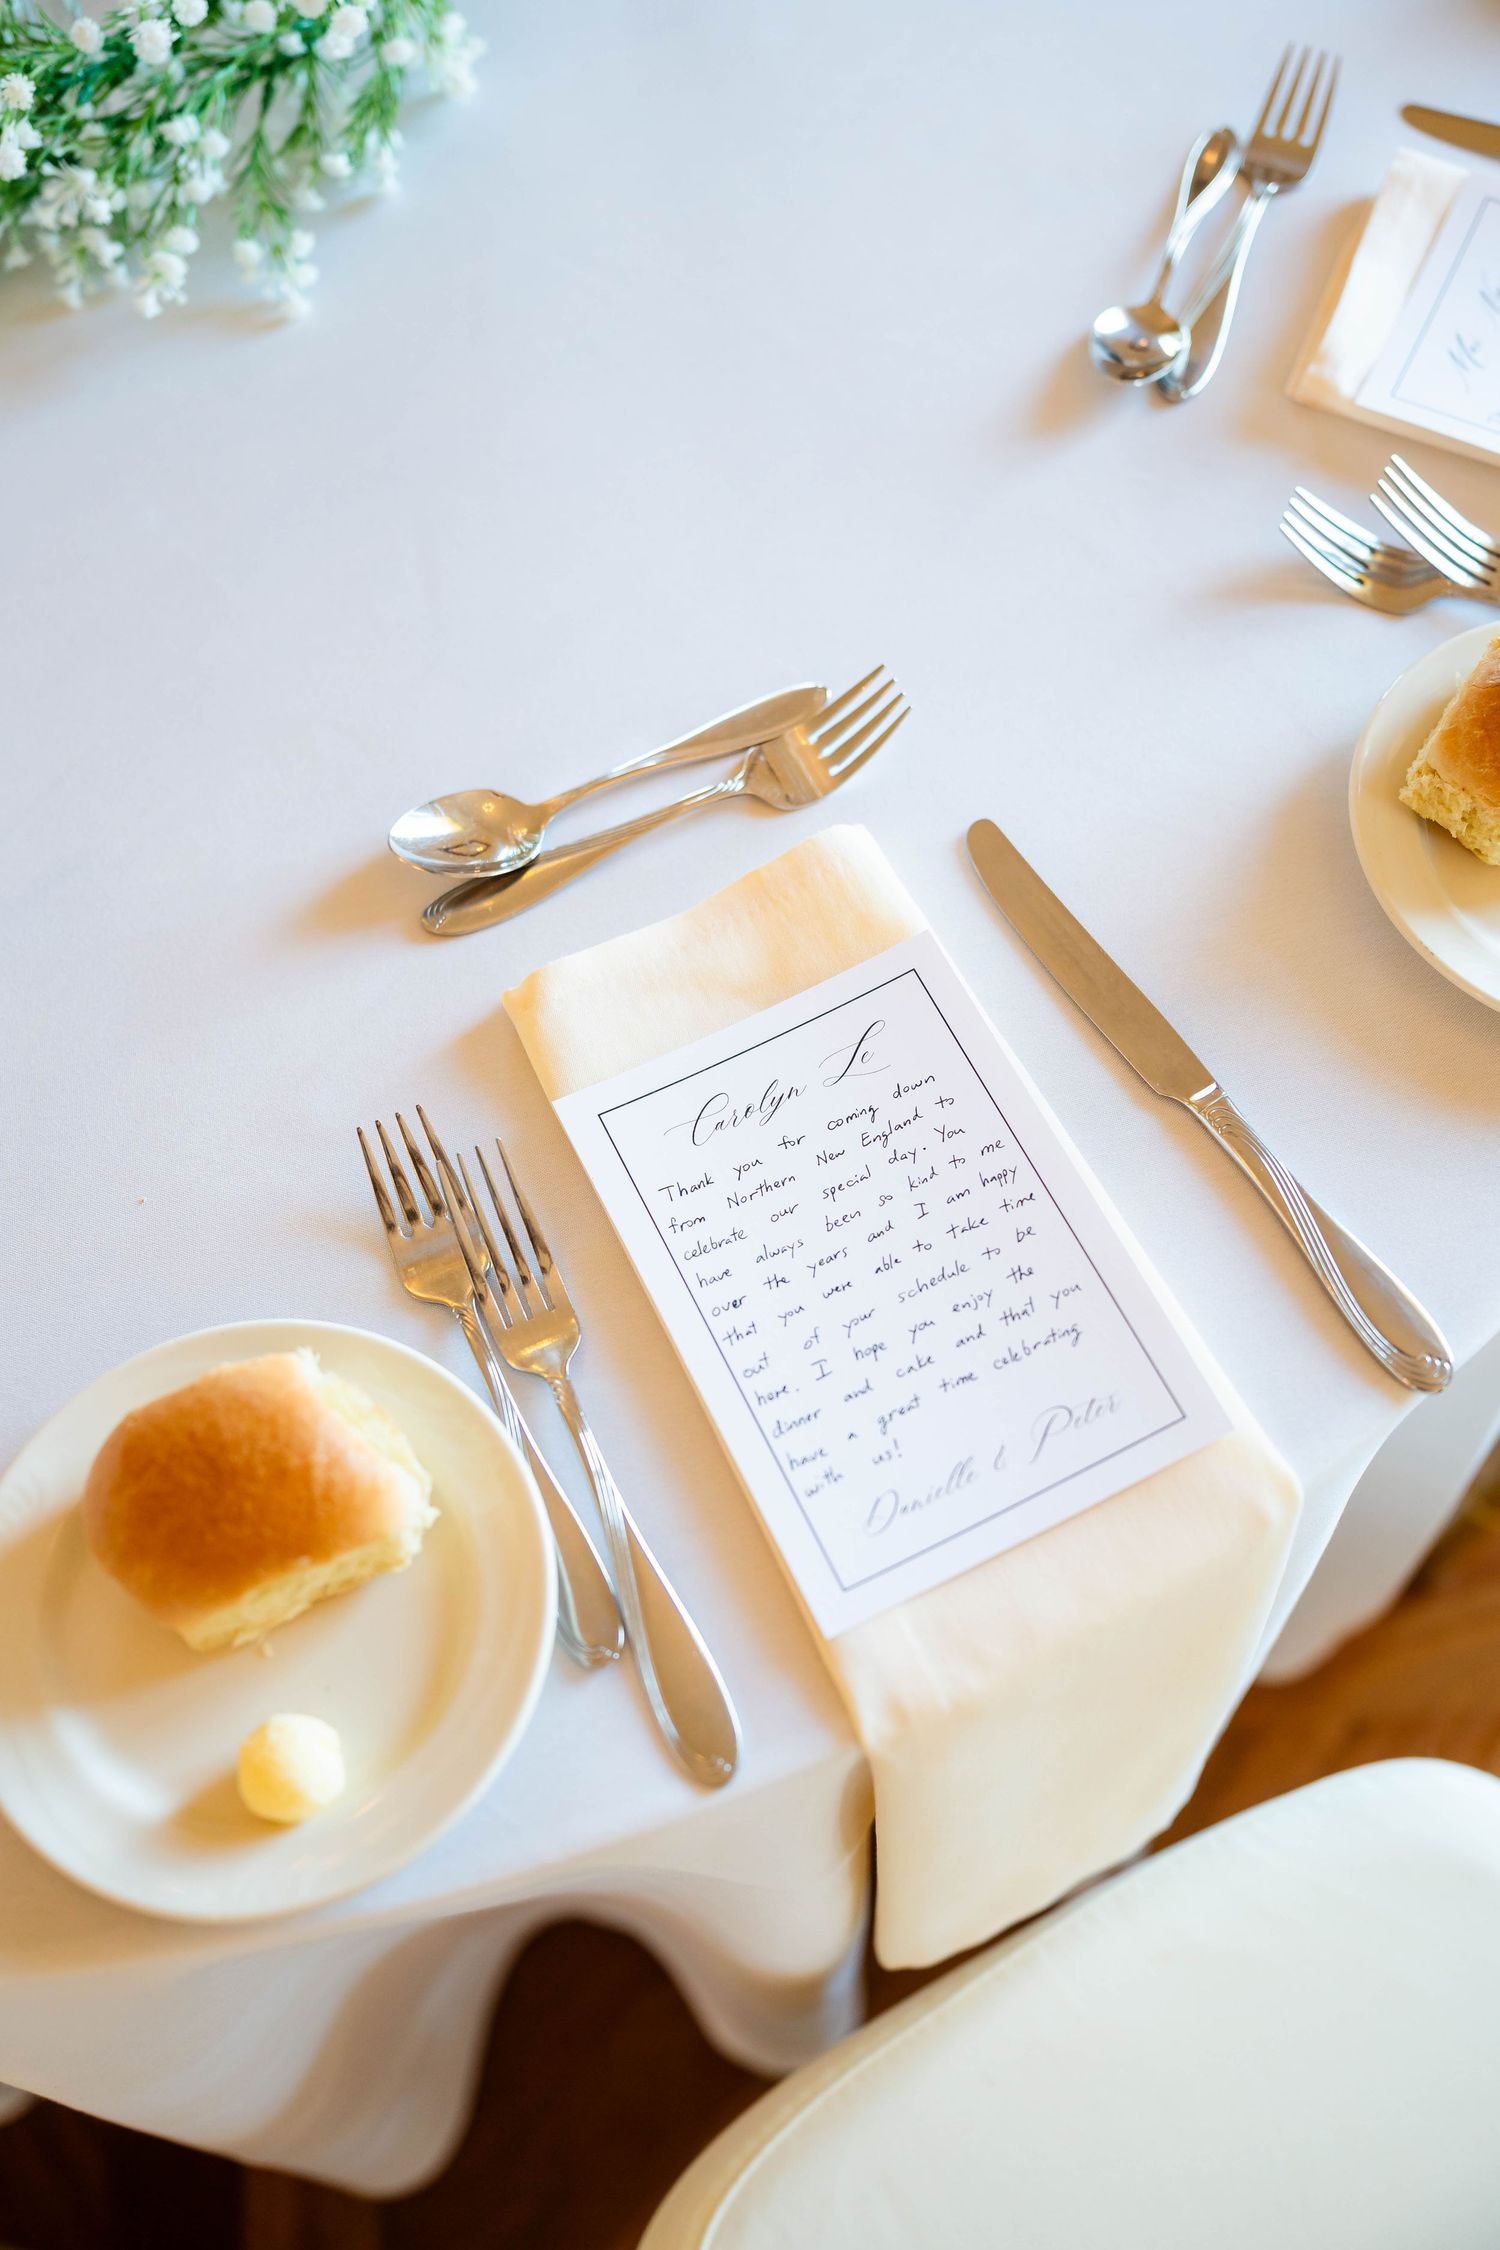 Carolyn Le
Thank you for coming down
from Northern New England to
celebrate our special day. You
have always been so kind to me
over the years and I am happy
that you were able to take time
out of your schedule to be
here. I hope you enjoy the
dinner and cake and that you
have a great time celebrating
with us!
Danielle & Peter